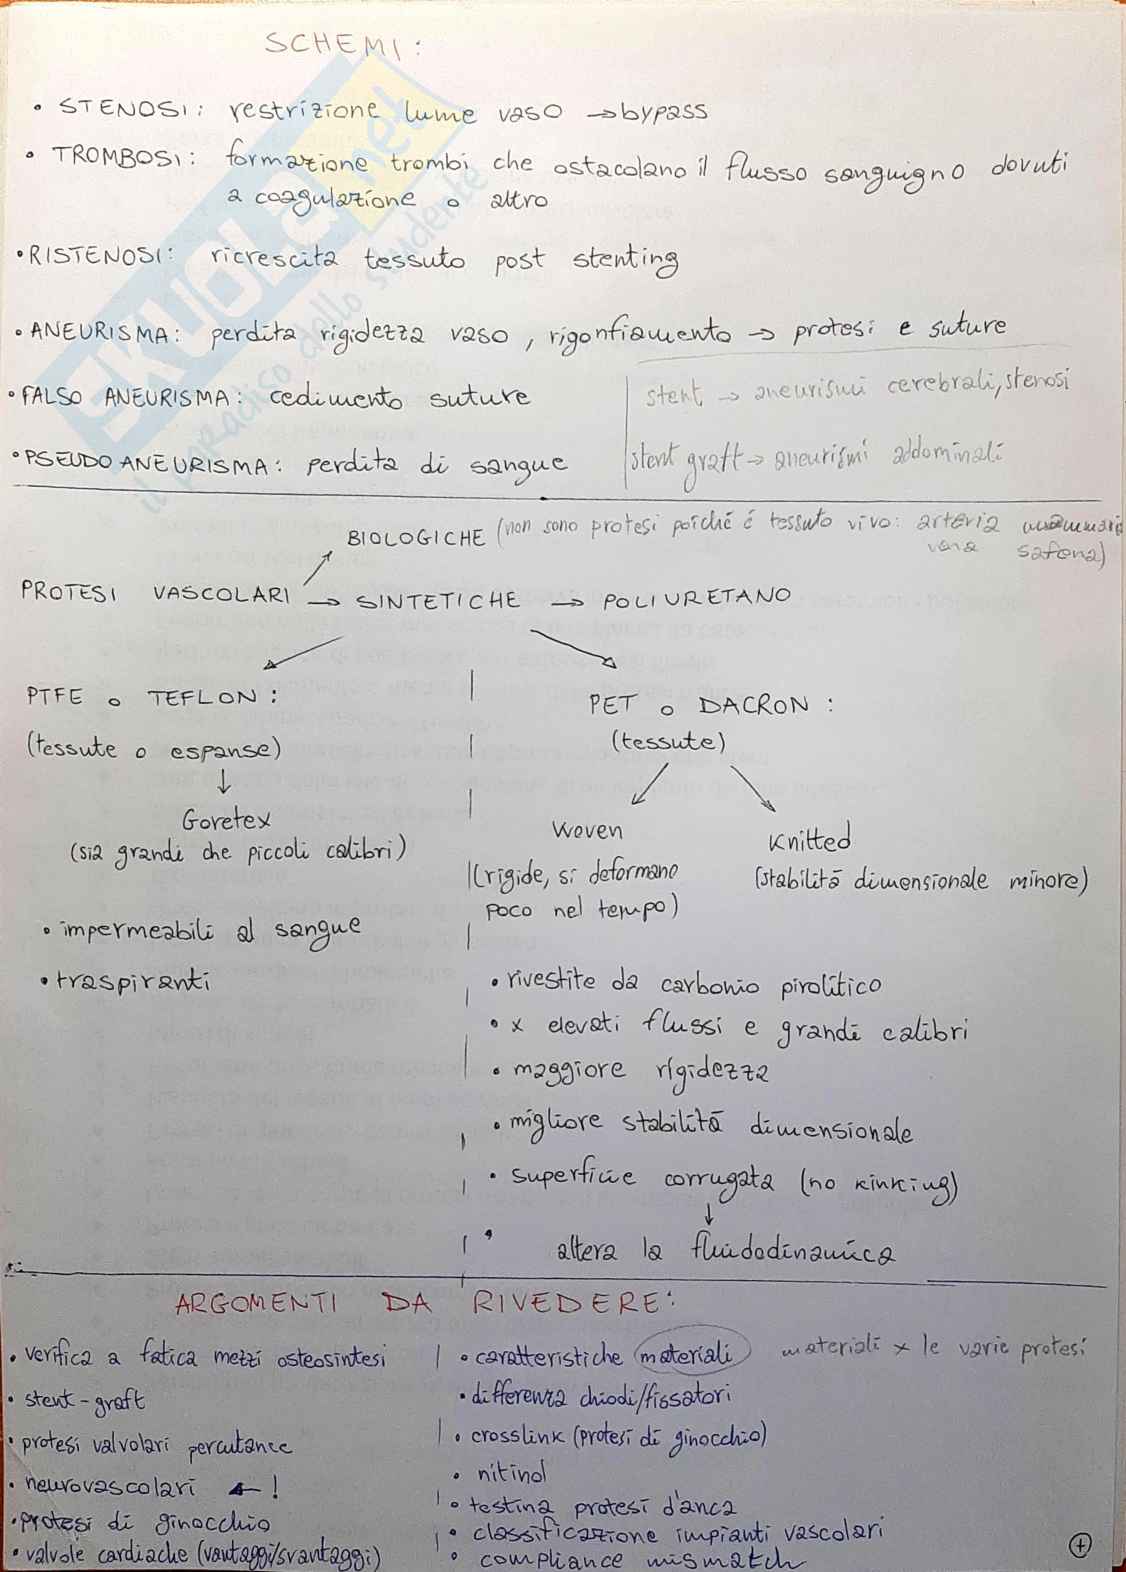 SCHEMI:
• STENOSI: restrizione lume vaso → bypass
• TROMBOSI: formazione trombi che ostacolano il flusso sanguigno dovuti
a coagulazione o altro
• RISTENOSI: ricrescita tessuto post stenting
• ANEURISMA: perdita rigidezza vaso, rigonfiamento → protesi e suture
• FALSO ANEURISMA: cedimento suture
stent → aneurismi cerebrali, stenosi
• PSEUDOANEURISMA: perdita di sangue
stent graft → aneurismi addominali
BIOLOGICHE (non sono protesi poiché é tessuto vivo: arteria mammaria
vena safena)
PROTESI VASCOLARI → SINTETICHE → POLIURETANO
PTFE o TEFLON:
(tessute o espanse)
↓
Goretex
(sia grandi che piccoli calibri)
• impermeabili al sangue
• traspiranti
PET o DACRON:
(tessute)
Woven
(rigide, si deformano
poco nel tempo)
Knitted
(stabilità dimensionale minore)
• rivestite da carbonio pirolitico
• x elevati flussi e grandi calibri
• maggiore rigidezza
• migliore stabilità dimensionale
• superficie corrugata (no kinking)
↓
altera la fluidodinamica
ARGOMENTI DA RIVEDERE:
• verifica a fatica mezzi osteosintesi
• stent-graft
• protesi valvolari percutanee
• neurovascolari ← !
• protesi di ginocchio
• valvole cardiache (vantaggi/svantaggi)
• caratteristiche materiali materiali x le varie protesi
• differenza chiodi/fissatori
• crosslink (protesi di ginocchio)
• nitinol
• testina protesi d'anca
• classificazione impianti vascolari
• compliance mismatch
+
SKUOLA.net
il paradiso dello studente